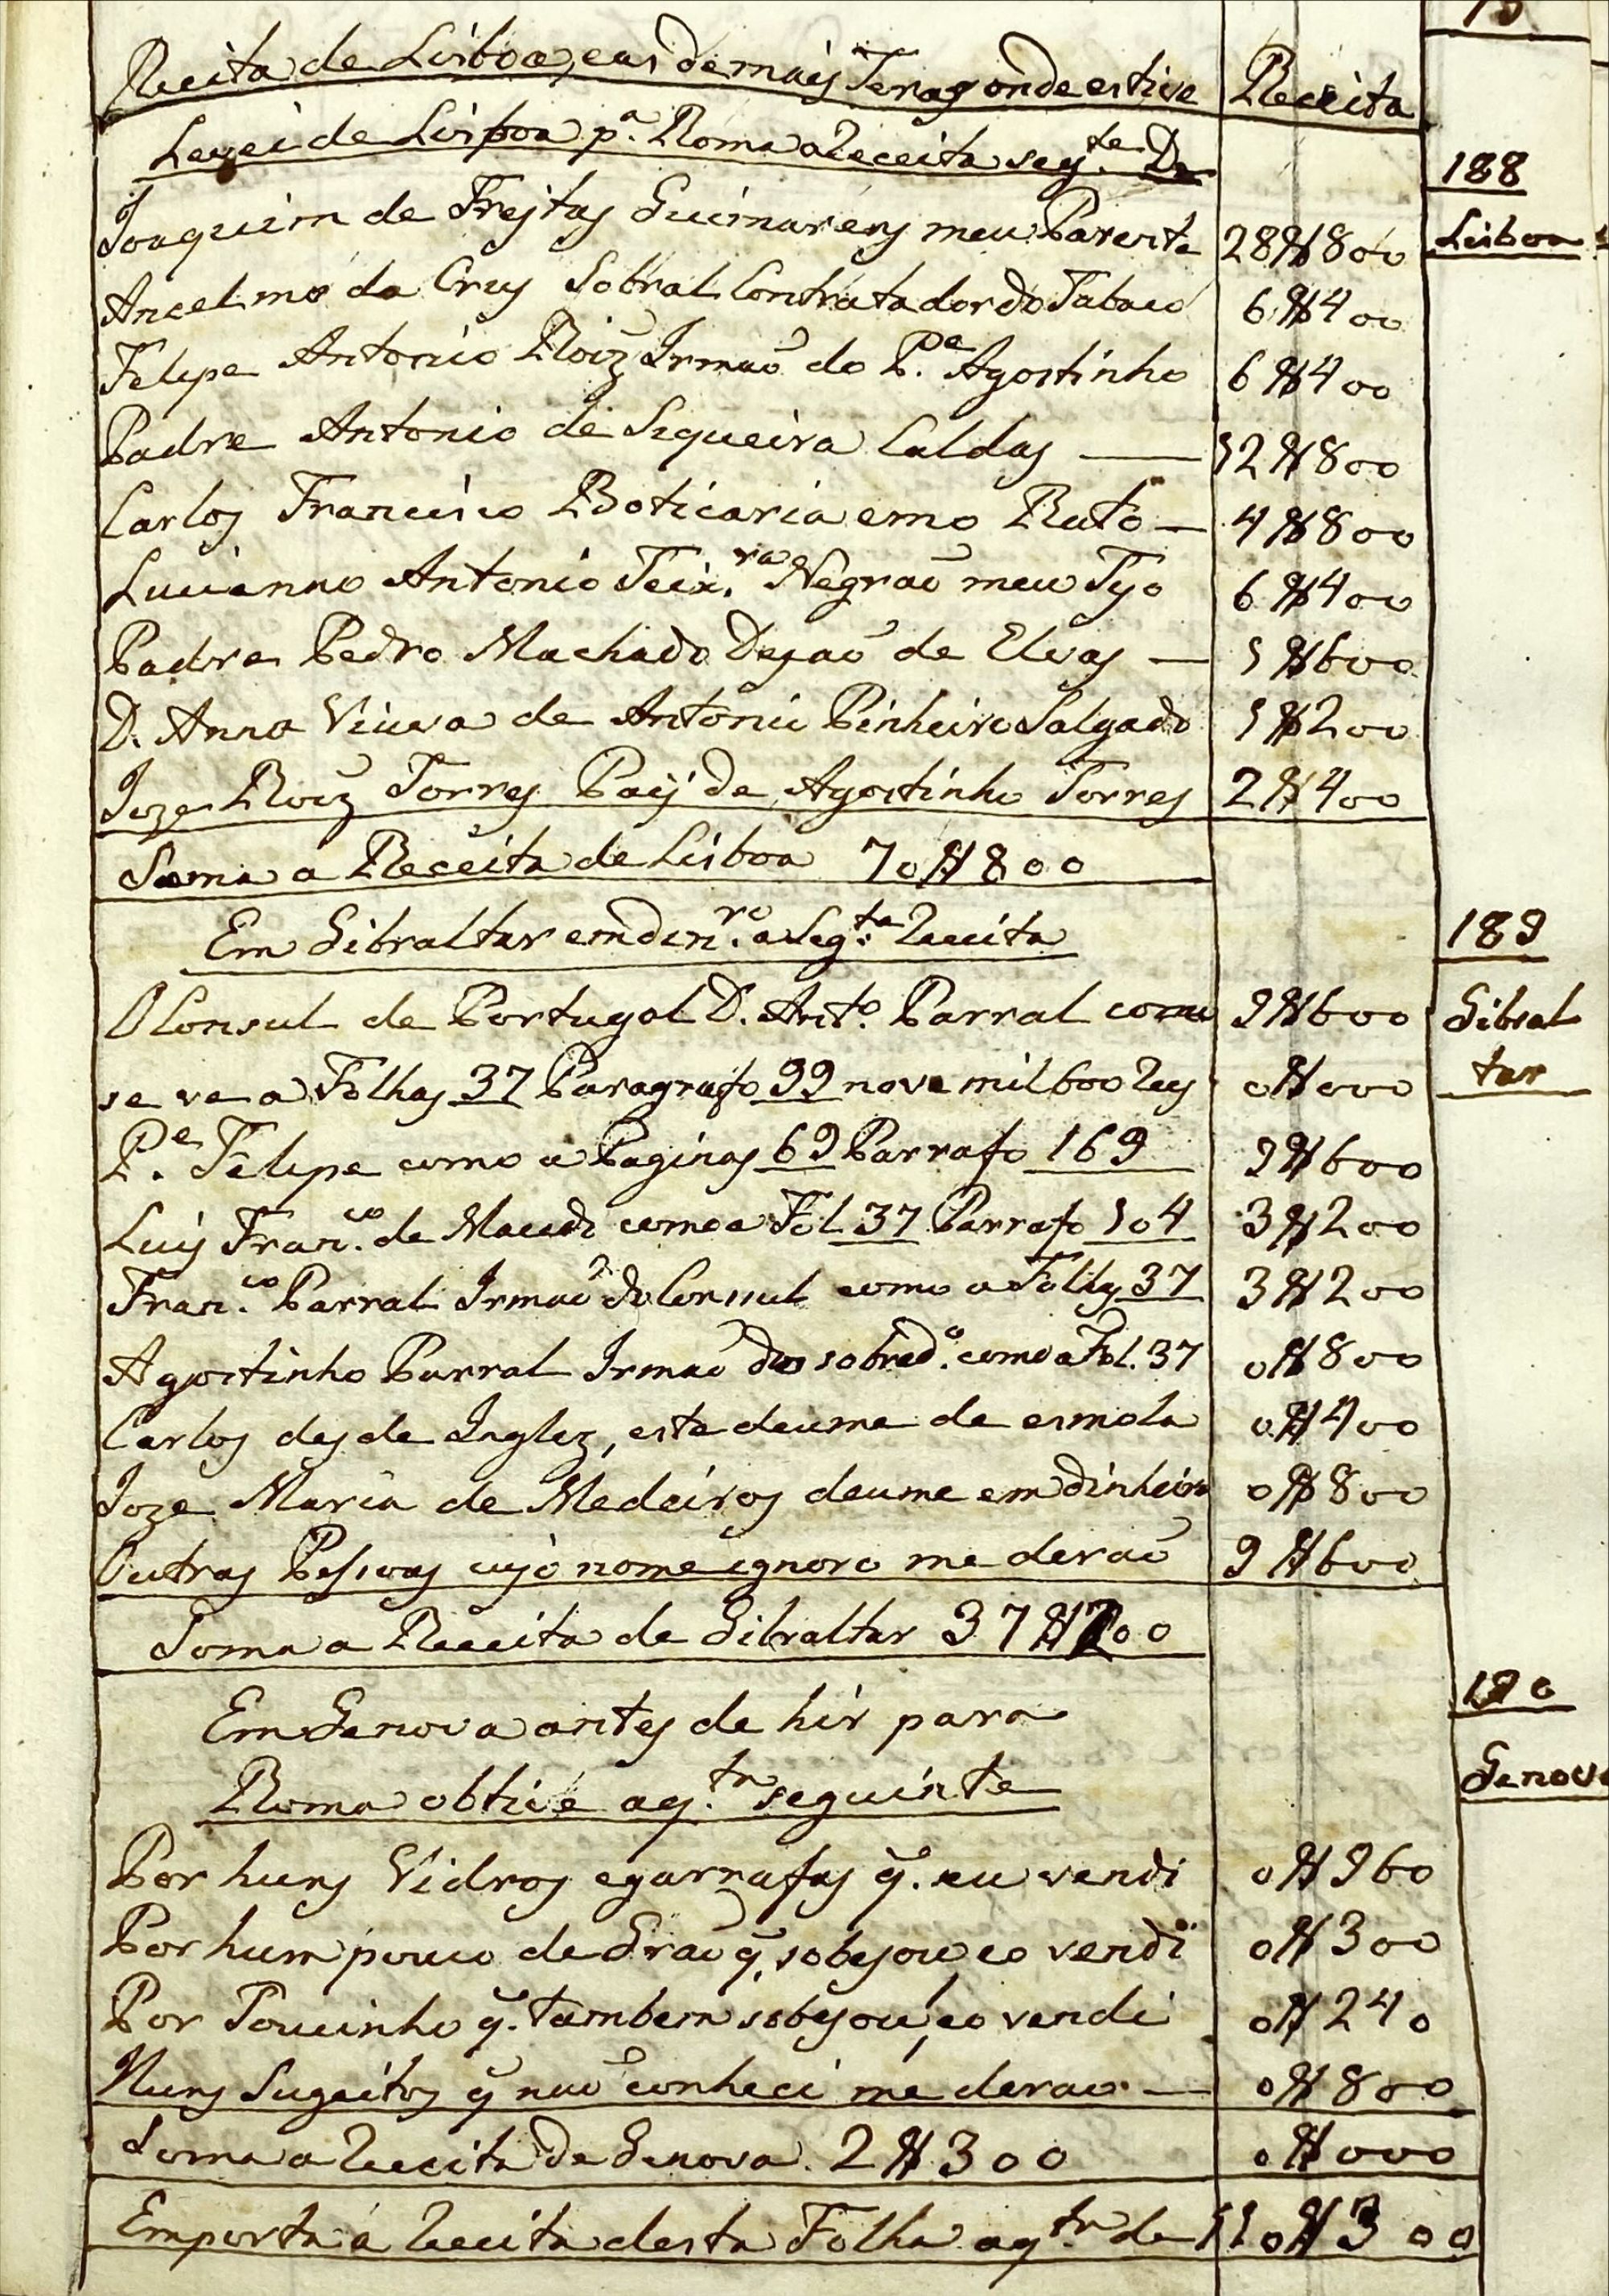 75
Receita de Lisboa, eas demais Terras onde estive Receita
Levei de Lisboa pª. Roma a Receita segte. De
188
Joaquim de Freitas Guimarens meu Parente 28$800 Lisboa
Ancelmo da Crus Sobral Contratador do Tabaco 6$400
Felipe Antonio Roiz Irmaõ do Pe. Agostinho 6$400
Padre Antonio de Siqueira Caldas — 12$800
Carlos Francisco Boticario emo Rato — 4$800
Lucianno Antonio Teixra. Negraõ meu Tyo 6$400
Padre Pedro Machado Deyaõ de Elvas — 1$600
D. Anna Viuva de Antonio Pinheiro Salgado 1$200
Joze Roiz Torres Paÿ de Agostinho Torres 2$400
Soma a Receita de Lisboa 70$800
Em Gibraltar em dinro. a Segte. Receita 189
O Consul de Portugal D. Anto. Parral como 9$600 Gibral
se ve a Folhas 37 Paragrafo 99 nove mil 600 Reis 0$000 tar
Pe. Felipe como a Paginas 69 Parrafo 169 9$600
Luis Franco. de Macedo como a Fol 37 Parrafo 104 3$200
Franco. Parral Irmaõ do Consul como a Folhas 37 3$200
Agostinho Parral Irmaõ dos sobredo. como a Fol. 37 0$800
Carlos des de Inglez, este deume de esmola 0$400
Joze Maria de Medeiros deume em dinheiro 0$800
Outras Pessoas cujo nome ignoro me deraõ 9$600
Soma a Receita de Gibraltar 37$200
Em Genova antes de hir para 190
Roma obtive a qta. seguinte Genova
Por huns Vidros e garrafas q̃. eu vendi 0$960
Por hum pouco de Graõ q̃. sobejou, eo vendi 0$300
Por Toucinho q̃. tambem sobejou, eo vendi 0$240
Huns Sugeitos q̃ naõ conheci me derao — 0$800
Soma a Receita de Genova. 2$300 0$000
Emporta a Receita desta Folha a qta. de 110$300